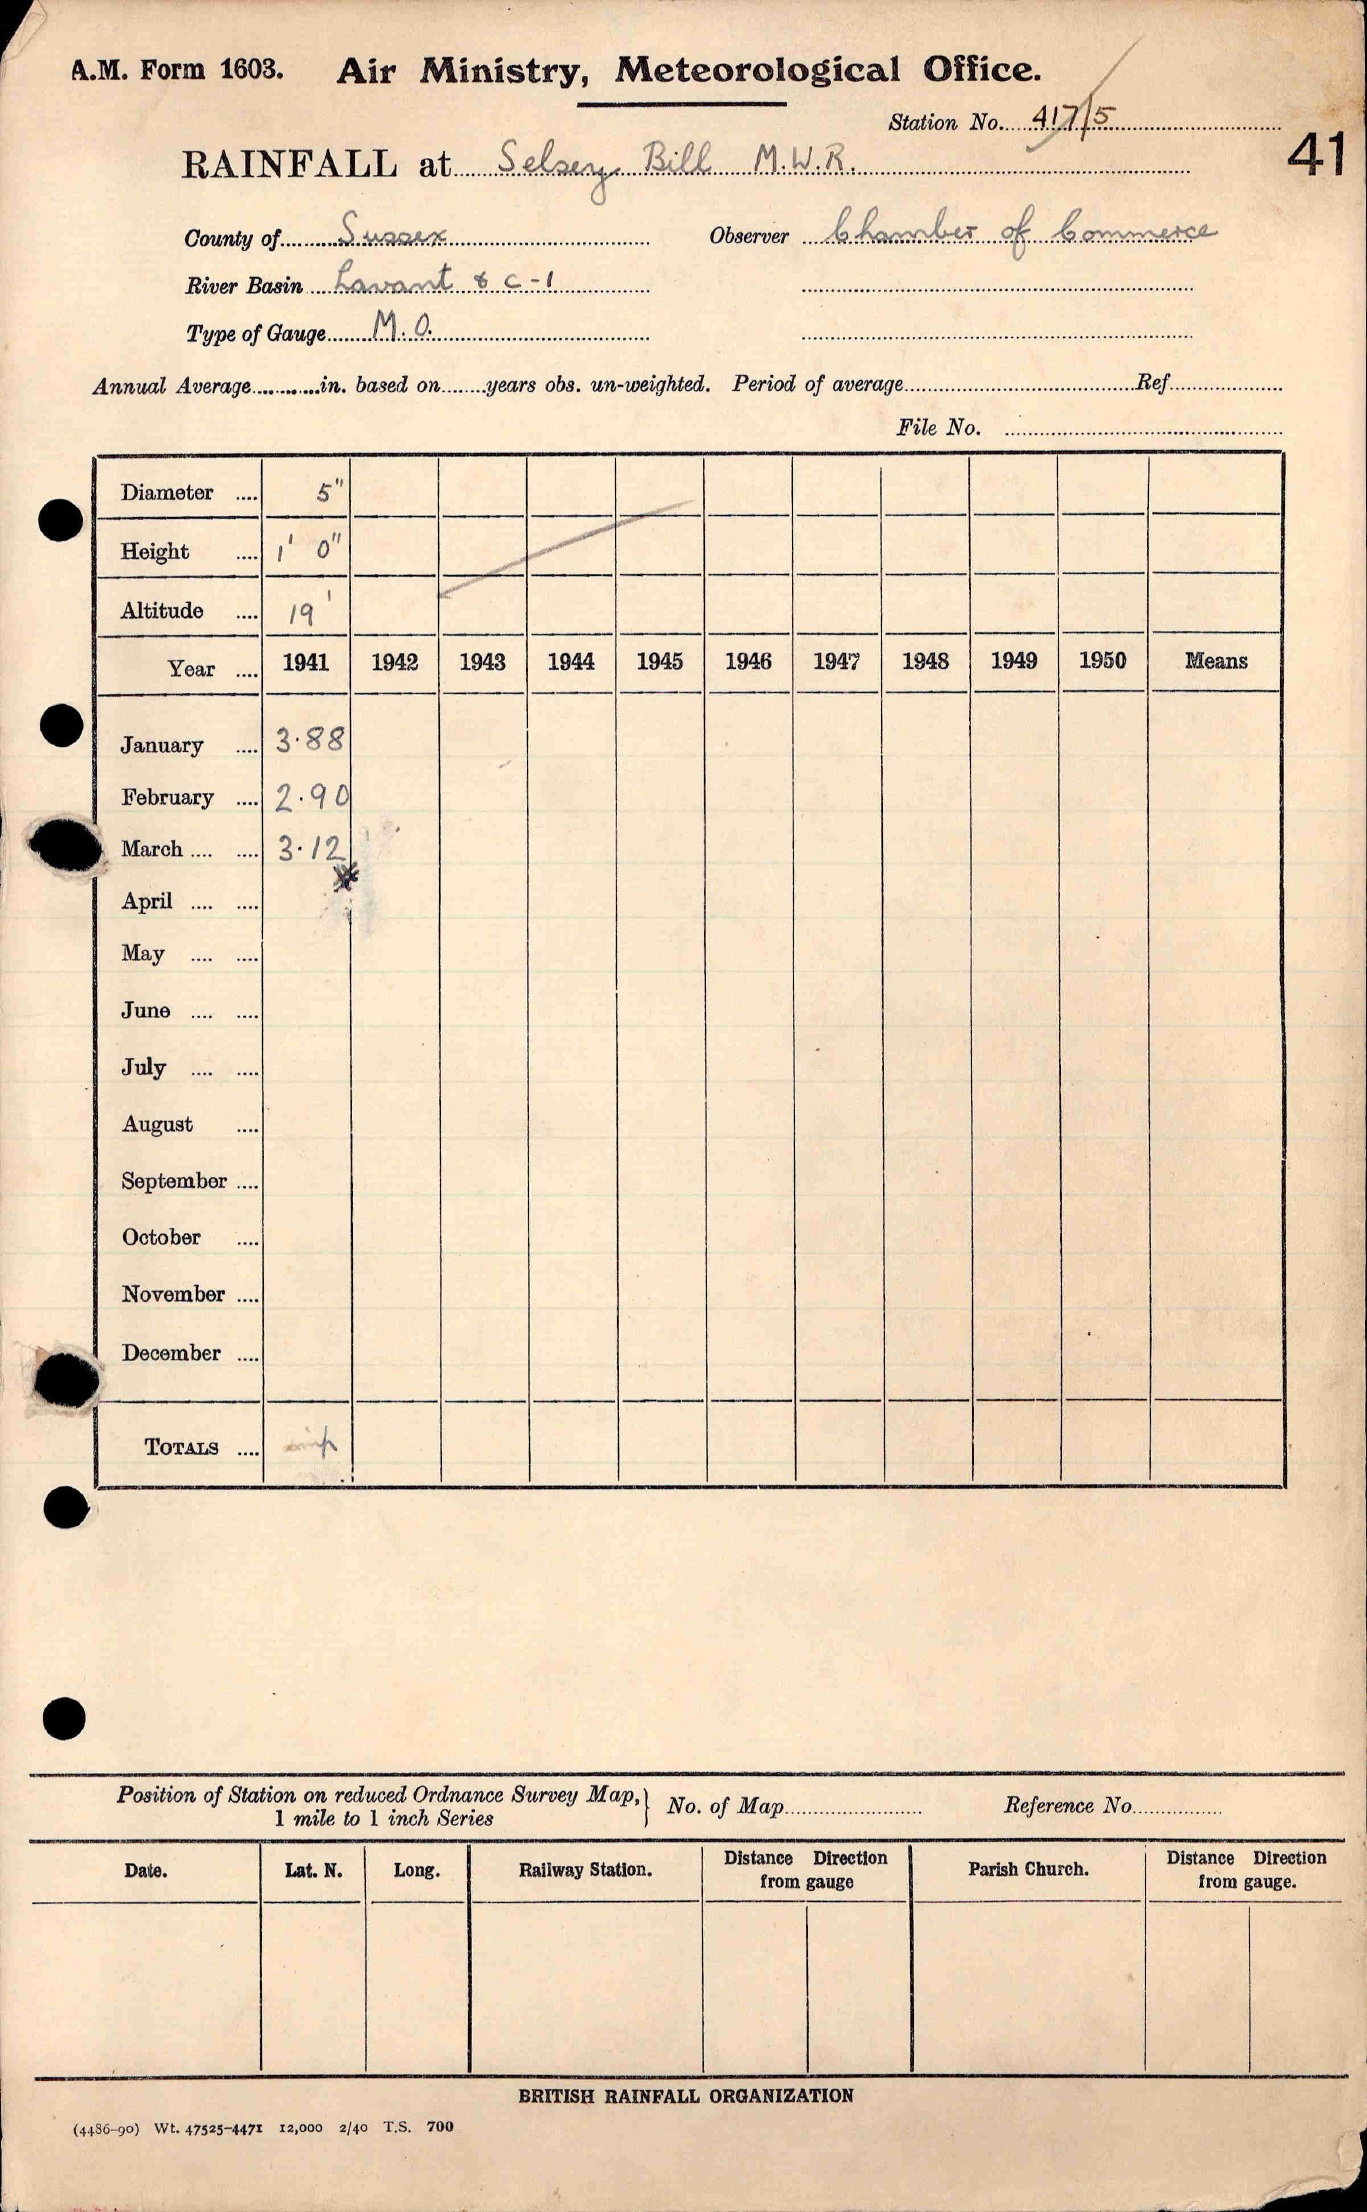 A.M. Form 1603. Air Ministry, Meteorological Office.
Station No. 417/5
41
RAINFALL at Selsey Bill M.W.R.
County of Sussex Observer Chamber of Commerce
River Basin Lavant & C-1
Type of Gauge M.O.
Annual Average in. based on years obs. un-weighted. Period of average Ref
File No.
Diameter 5"
Height 1' 0"
Altitude 19'
Year 1941 1942 1943 1944 1945 1946 1947 1948 1949 1950 Means
January 3.88
February 2.90
March 3.12
April
May
June
July
August
September
October
November
December
TOTALS
Position of Station on reduced Ordnance Survey Map,
1 mile to 1 inch Series
No. of Map Reference No.
Date. Lat. N. Long. Railway Station. Distance Direction from gauge Parish Church. Distance Direction from gauge.
BRITISH RAINFALL ORGANIZATION
(4486-90) Wt. 47525-4471 12,000 2/40 T.S. 700